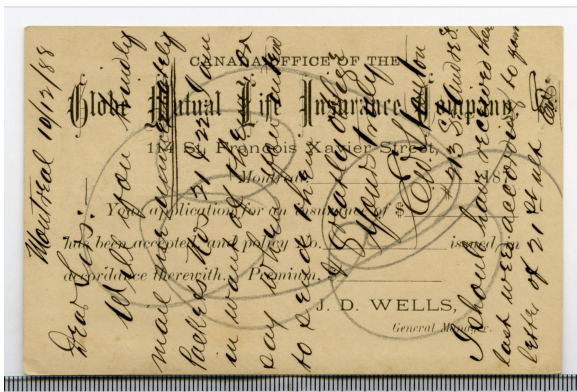 CANADA OFFICE OF THE
Globe Mutual Life Insurance Company,
114 St. François Xavier Street,
Montreal, 8
Your application for an insurance of $
has been accepted, and policy No. issued in
accordance therewith. Premium,
J. D. WELLS,
General Manager.
Montreal 10/12/88
Dear Sirs:
Will you kindly
mail me immediately
Packets Nos 21 I am
in want of them
say when you intend
to send them
Yours truly
I should have received them
last week according to your
letter of 21st ult